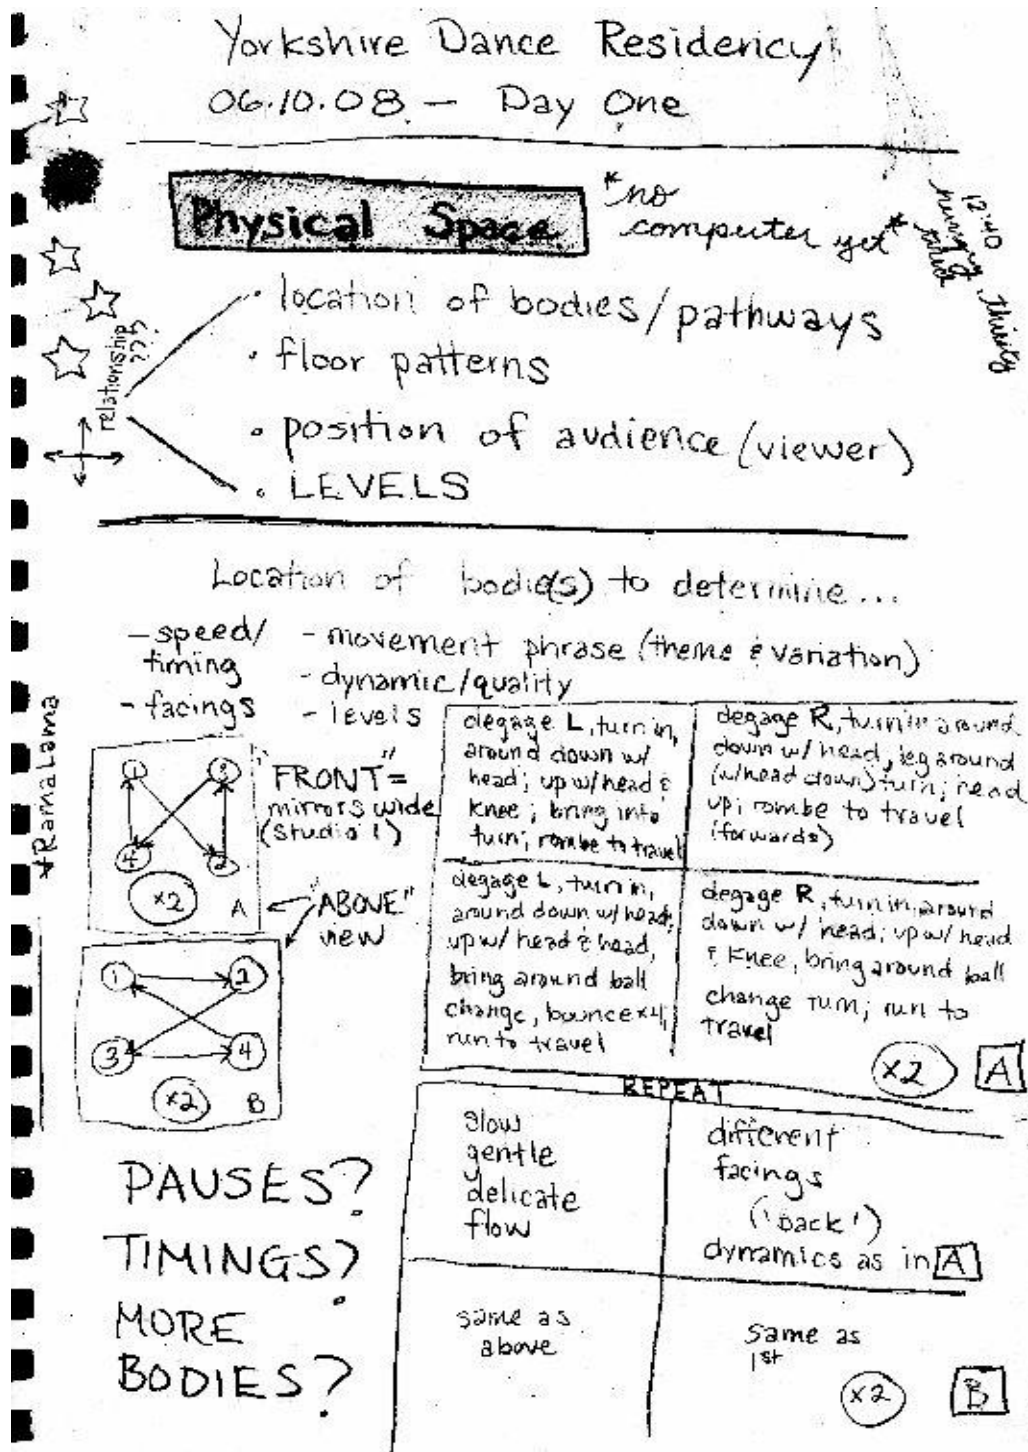 Yorkshire Dance Residency
06.10.08 — Day One
Physical Space
*no
computer yet*
12:40
hungry,
thirsty
relationship
???
• location of bodies/pathways
• floor patterns
• position of audience (viewer)
• LEVELS
Location of bodie(s) to determine...
- speed/
timing
- facings
- movement phrase (theme & variation)
- dynamic/quality
- levels
RamaLama
1
3
4
2
x2
A
"FRONT"=
mirrors wide
(Studio 1)
"ABOVE"
view
1
2
3
4
x2
B
degage L, turn in,
around down w/
head; up w/ head &
knee; bring into
turn; rombe to travel
degage R, turn in around
down w/ head, leg around
(w/head down) turn; head
up; rombe to travel
(forwards)
degage L, turn in,
around down w/ head,
up w/ head & head,
bring around ball
change, bounce x4,
run to travel
degage R, turn in, around
down w/ head; up w/ head
& knee, bring around ball
change turn; run to
travel
x2
A
REPEAT
slow
gentle
delicate
flow
different
facings
('back')
dynamics as in A
same as
above
same as
1st
x2
B
PAUSES?
TIMINGS?
MORE
BODIES?